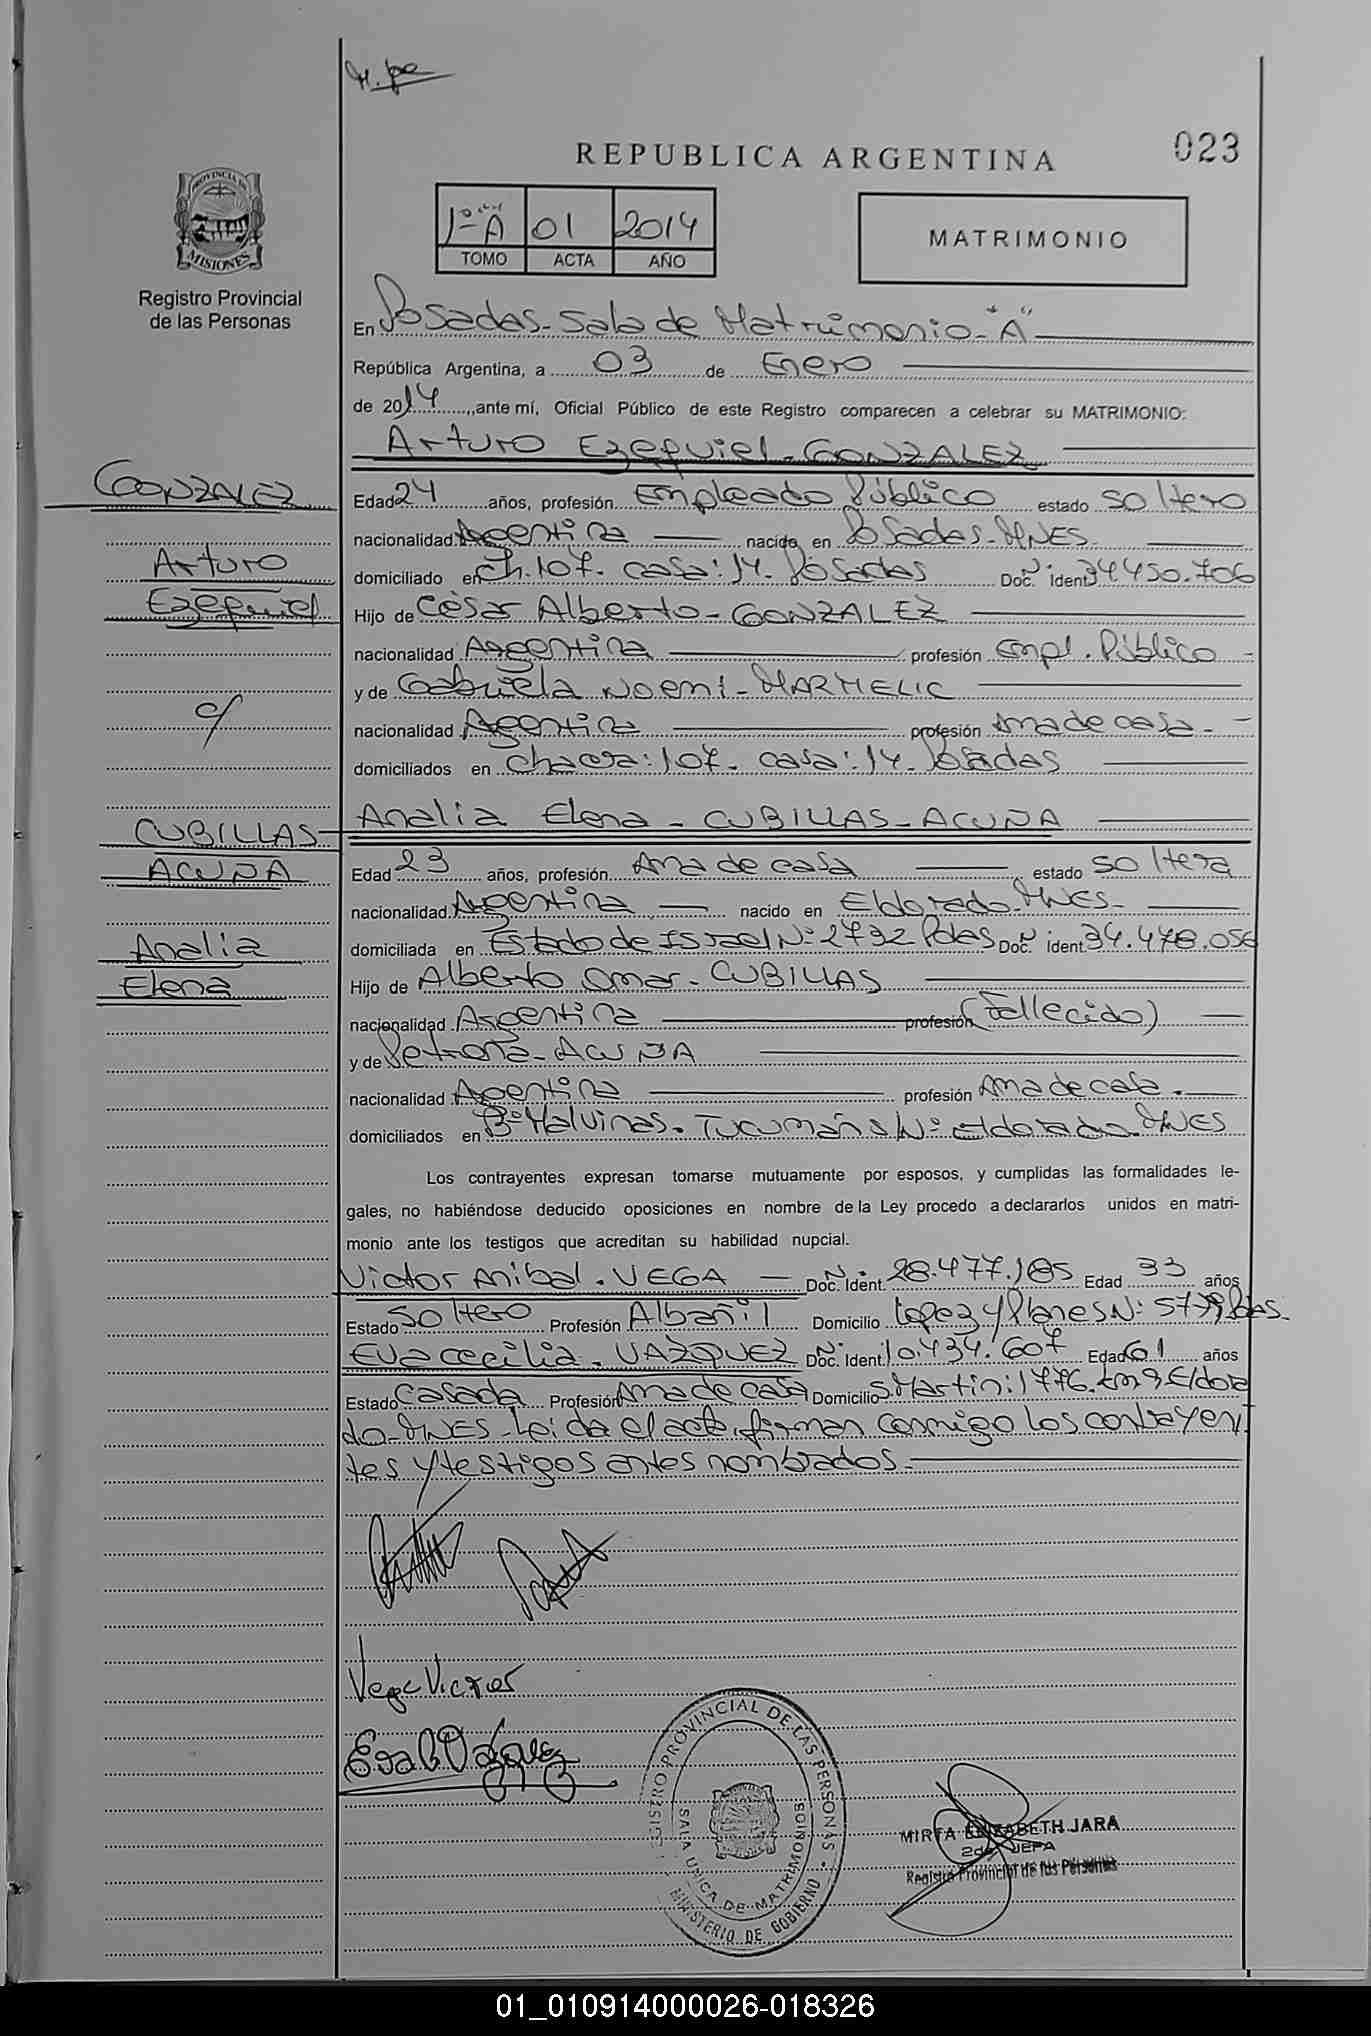 023
REPUBLICA ARGENTINA
PROVINCIA DE
MISIONES
Registro Provincial
de las Personas
1º "A" 01 2014
TOMO ACTA AÑO
MATRIMONIO
En Posadas- Sala de Matrimonio- "A"
República Argentina, a 03 de Enero
de 2014, ante mí, Oficial Público de este Registro comparecen a celebrar su MATRIMONIO:
Arturo Ezequiel- GONZALEZ
GONZALEZ
Arturo
Ezequiel
c/
CUBILLAS
ACUÑA
Analia
Elena
Edad 24 años, profesión Empleado Público estado soltero
nacionalidad Argentina nacido en Posadas- MNES-
domiciliado en Ch. 107- casa: 14- Posadas Doc. Nº Ident 34.450.706
Hijo de César Alberto- GONZALEZ
nacionalidad Argentina profesión Empl. Público -
y de Gabriela Noemi- MARMELIC
nacionalidad Argentina profesión Ama de casa -
domiciliados en Chacra: 107- casa: 14- Posadas
Analia Elena - CUBILLAS- ACUÑA
Edad 23 años, profesión Ama de casa estado soltera
nacionalidad Argentina nacido en Eldorado- MNES-
domiciliada en Estado de Israel Nº: 2732 Pdas Doc. Nº Ident 34.478.056
Hijo de Alberto Omar- CUBILLAS
nacionalidad Argentina profesión (Fallecido)
y de Petrona- ACUÑA
nacionalidad Argentina profesión Ama de casa.
domiciliados en Bº Malvinas- Tucumán S/Nº: Eldorado- MNES
Los contrayentes expresan tomarse mutuamente por esposos, y cumplidas las formalidades le-
gales, no habiéndose deducido oposiciones en nombre de la Ley procedo a declararlos unidos en matri-
monio ante los testigos que acreditan su habilidad nupcial.
Victor Anibal- VEGA Doc. Nº Ident. 28.477.185 Edad 33 años
Estado soltero Profesión Albañil Domicilio Lopez y Planes Nº: Pdas.
Eva cecilia- VAZQUEZ Doc. Nº Ident 10.434.607 Edad 61 años
Estado Casada Profesión Ama de casa Domicilio S. Martin: 1776- Km 9 Eldora
do- MNES- Leida el acta, firman conmigo los contrayen
tes y testigos antes nombrados-
Vega Victor
Eva C Vazquez
REGISTRO PROVINCIAL DE LAS PERSONAS
SALA UNICA DE MATRIMONIOS
MINISTERIO DE GOBIERNO
MIRTA ELIZABETH JARA
2da JEFA
Registro Provincial de las Personas
01_010914000026-018326